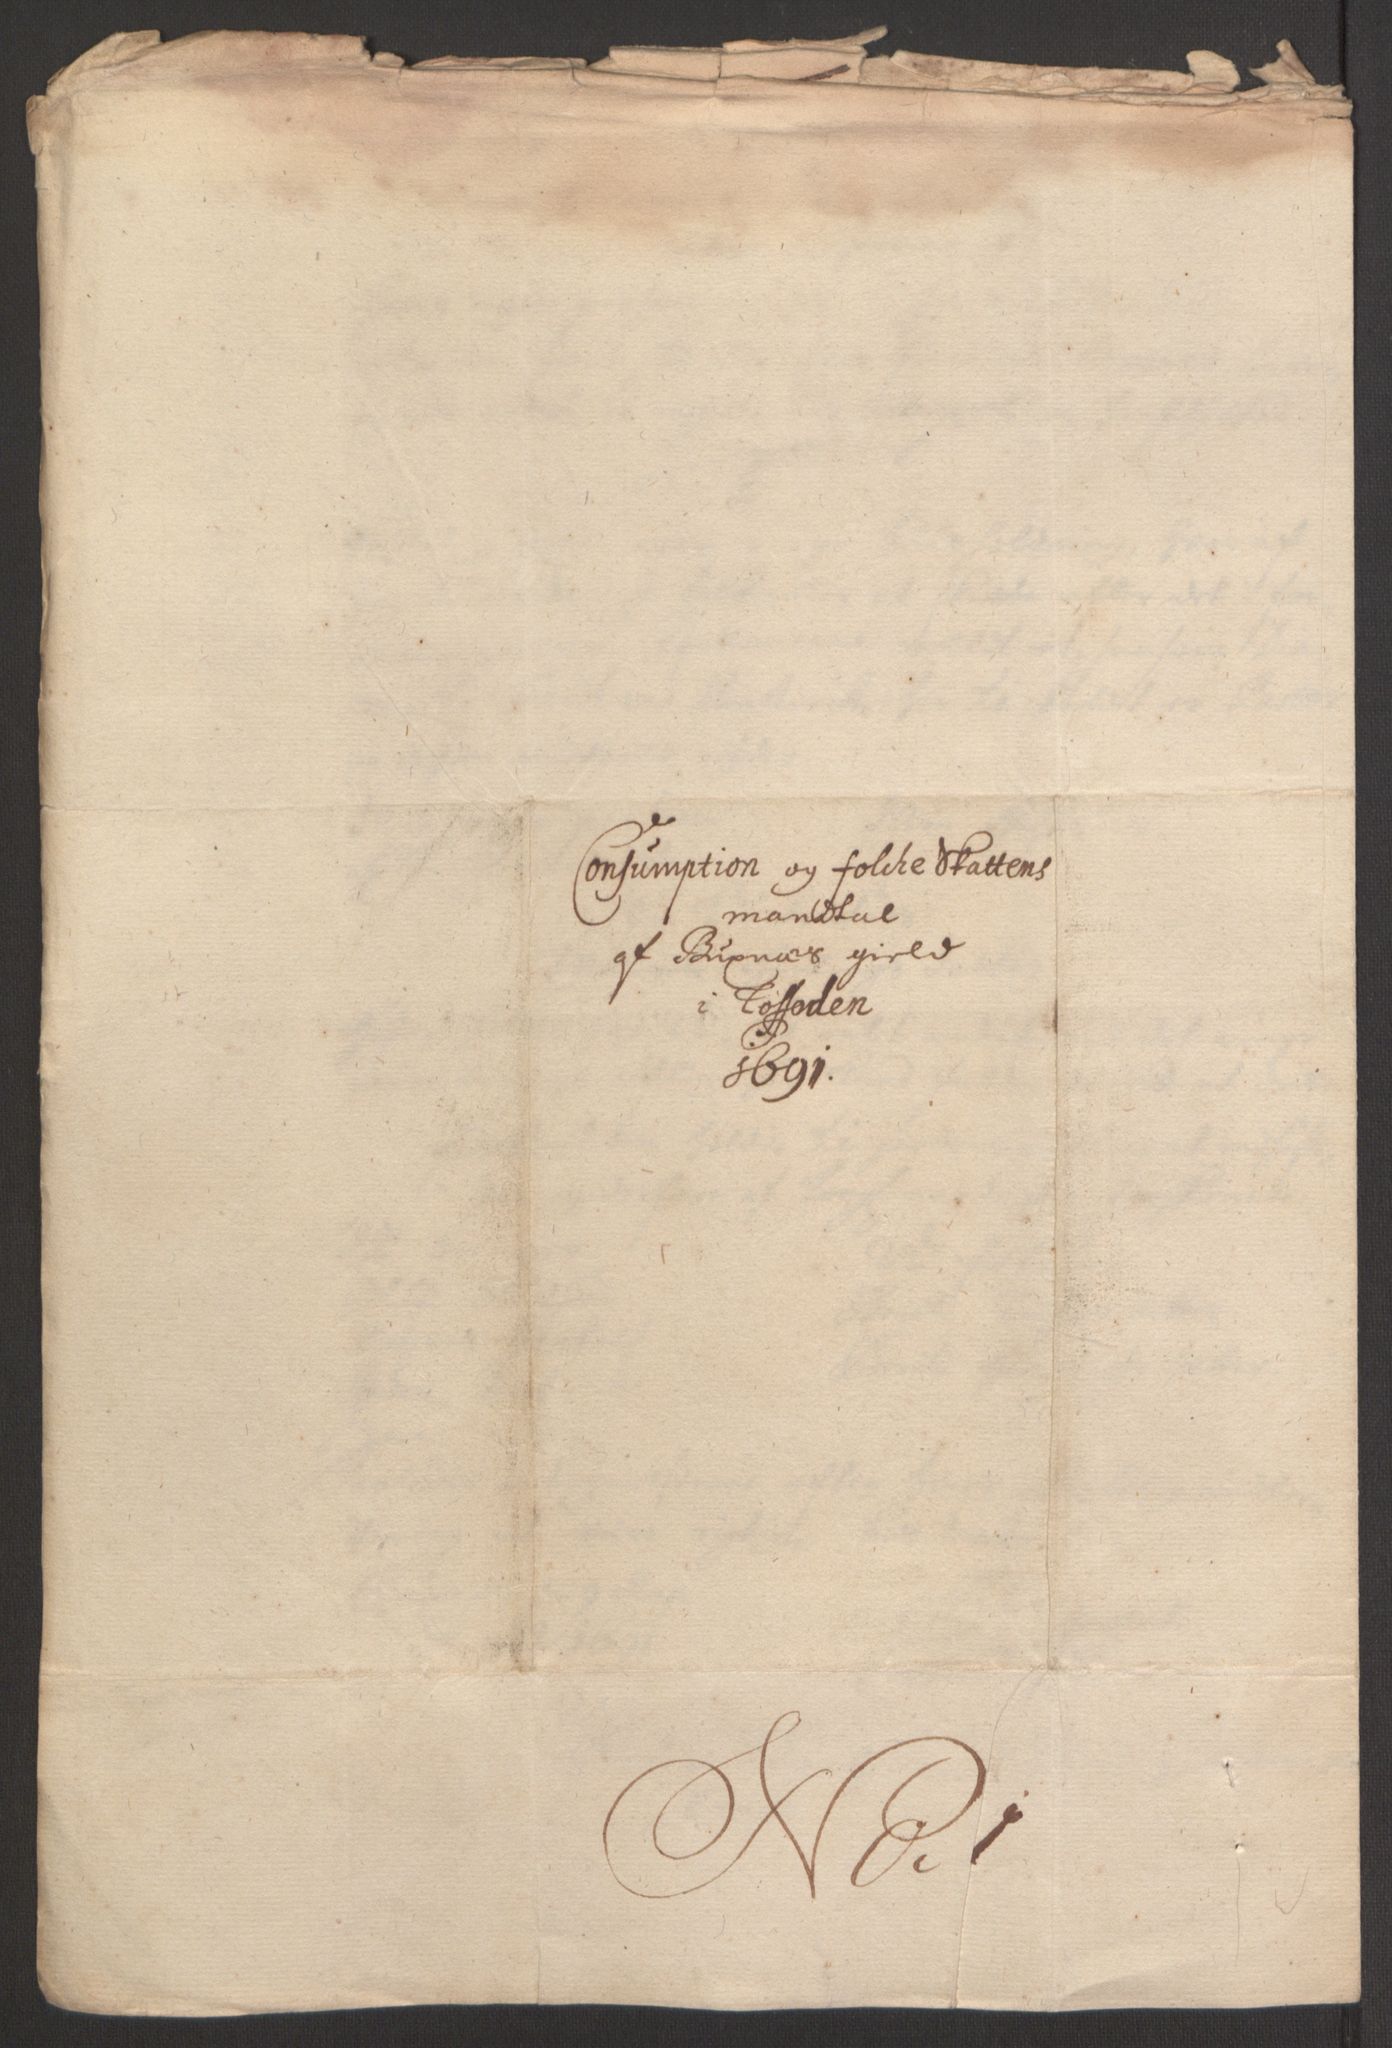 Consumption og folcke Skattens
mandtal
af Buxnæs gield
i Loffoden
1691.
No 1